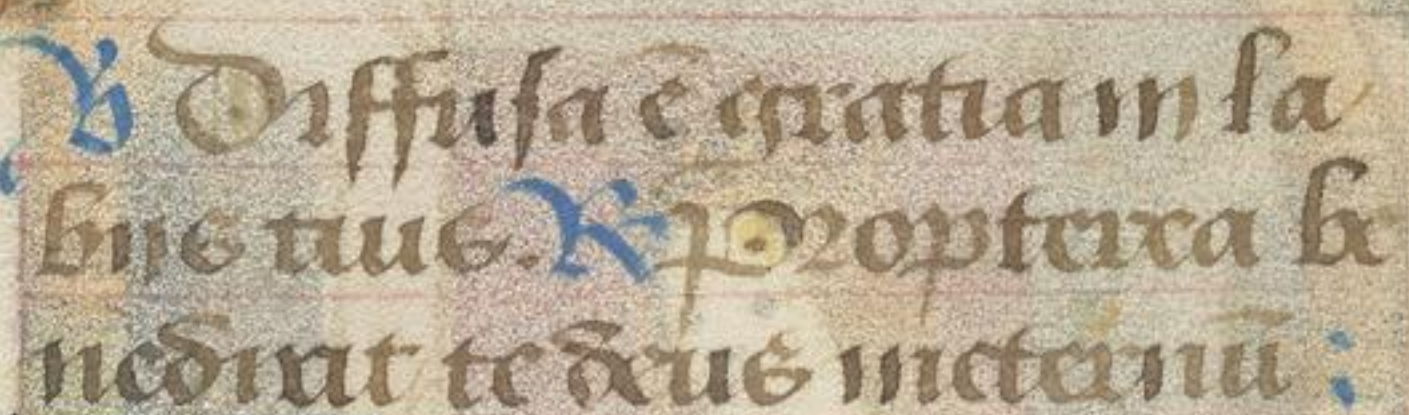 ℣ Diffusa ē gratia in la
bijs tuis. ℟ Propterea be
nedixit te deus ineternū :